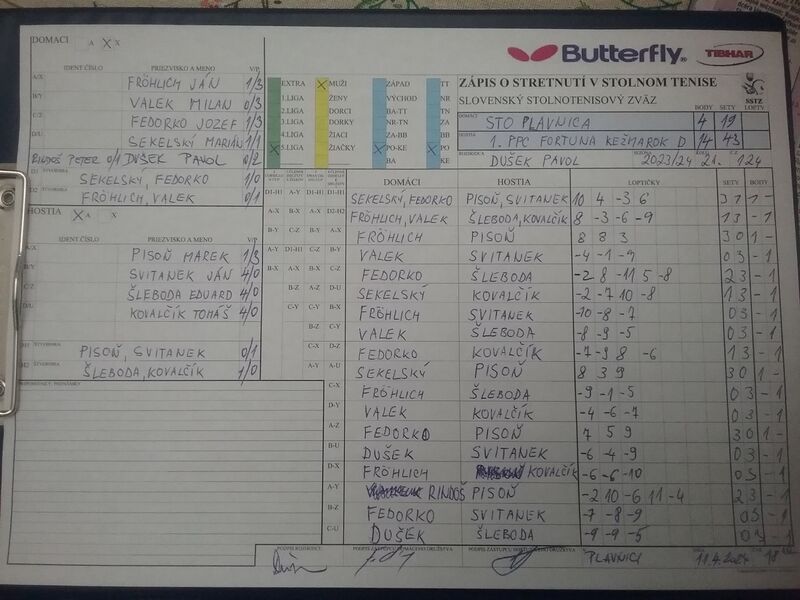 DOMÁCI A X X
IDENT ČÍSLO PRIEZVISKO A MENO V/P
A/X FRÖHLICH JÁN 1/3
B/Y VALEK MILAN 0/3
C/Z FEDORKO JOZEF 1/3
D/U SEKELSKÝ MARIÁN 1/1
RINDOŠ PETER 0/1 DUŠEK PAVOL 0/2
D1 ŠTVORHRA SEKELSKÝ, FEDORKO 1/0
FRÖHLICH, VALEK 0/1
HOSTIA X A X
IDENT ČÍSLO PRIEZVISKO A MENO V/P
A/X PISOŇ MAREK 1/3
B/Y SVITANEK JÁN 4/0
C/Z ŠLEBODA EDUARD 4/0
D/U KOVALČÍK TOMÁŠ 4/0
ŠTVORHRA PISOŇ, SVITANEK 0/1
ŠTVORHRA ŠLEBODA, KOVALČÍK 1/0
Butterfly TIBHAR
EXTRA X MUŽI ZÁPAD TT
1.LIGA ŽENY VÝCHOD BJ
2.LIGA DORCI BA-TT TN
3.LIGA DORKY NR-TN ZA
4.LIGA ŽIACI ZA-BB BB
X 5.LIGA ŽIAČKY X PO-KE X PO
BA KE
ZÁPIS O STRETNUTÍ V STOLNOM TENISE
SLOVENSKÝ STOLNOTENISOVÝ ZVÄZ
SSTZ
BODY SETY LOPTY
DOMÁCI STO PLAVNICA 4 19
HOSTIA 1. PPC FORTUNA KEŽMAROK D 14 43
ROZHODCA DUŠEK PAVOL 2023/24 21.
DOMÁCI HOSTIA LOPTIČKY SETY BODY
D1-H1 A-Y D1-H1 D1-H1 SEKELSKÝ, FEDORKO PISOŇ, SVITANEK 10 4 -3 6 3 1 1 -
A-X B-X A-X D2-H2 FRÖHLICH, VALEK ŠLEBODA, KOVALČÍK 8 -3 -6 -9 1 3 - 1
B-Y C-Z B-Y A-X FRÖHLICH PISOŇ 8 8 3 3 0 1 -
A-Y D1-H1 C-Z B-Y VALEK SVITANEK -4 -1 -9 0 3 - 1
B-X A-X B-X C-Z FEDORKO ŠLEBODA -2 8 -11 5 -8 2 3 - 1
B-Z A-Z D-U SEKELSKÝ KOVALČÍK -2 -7 10 -8 1 3 - 1
C-Y C-Y B-X FRÖHLICH SVITANEK -10 -8 -7 0 3 - 1
B-Z C-Y VALEK ŠLEBODA -8 -9 -5 0 3 - 1
C-X D-Z FEDORKO KOVALČÍK -7 -9 8 -6 1 3 - 1
A-Y A-U SEKELSKÝ PISOŇ 8 3 9 3 0 1 -
PRIPOMIENKY, POZNÁMKY
C-X FRÖHLICH ŠLEBODA -9 -1 -5 0 3 - 1
D-Y VALEK KOVALČÍK -4 -6 -7 0 3 - 1
A-Z FEDORKO PISOŇ 7 5 9 3 0 1 -
B-U DUŠEK SVITANEK -6 -4 -9 0 3 - 1
D-X FRÖHLICH KOVALČÍK -6 -6 -10 0 3 - 1
A-Y RINDOŠ PISOŇ -2 10 -6 11 -4 2 3 - 1
B-Z FEDORKO SVITANEK -7 -8 -9 0 3 - 1
C-U DUŠEK ŠLEBODA -9 -9 -5 0 3 - 1
PODPIS ROZHODCU PODPIS ZÁSTUPCU DOMÁCEHO DRUŽSTVA PODPIS ZÁSTUPCU HOSŤUJÚCEHO DRUŽSTVA PLAVNICI 11.4.2024 18